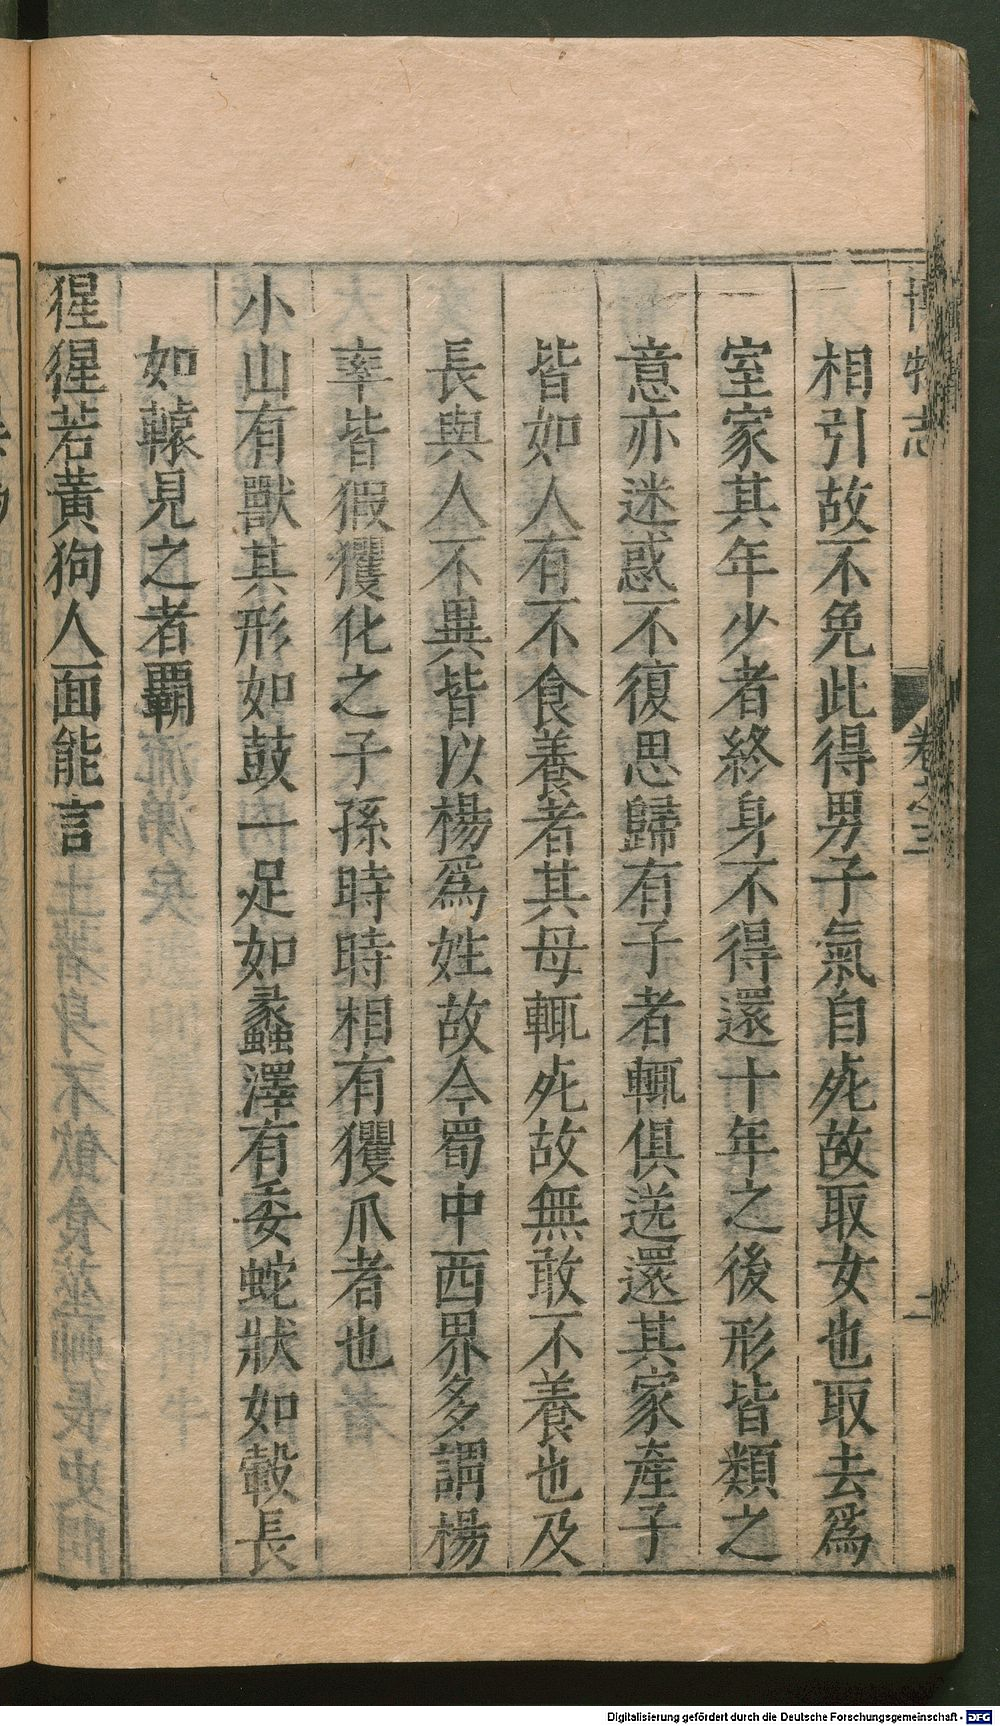 博物志 卷之三 二
相引故不免此得男子氣自死故取女也取去爲
室家其年少者終身不得還十年之後形皆類之
意亦迷惑不復思歸有子者輒俱送還其家產子
皆如人有不食養者其母輒死故無敢不養也及
長與人不異皆以楊爲姓故今蜀中西界多謂楊
率皆猳玃化之子孫時時相有玃爪者也
小山有獸其形如鼓一足如蠡澤有委蛇狀如轂長
如轅見之者霸
猩猩若黃狗人面能言
Digitalisierung gefördert durch die Deutsche Forschungsgemeinschaft - DFG